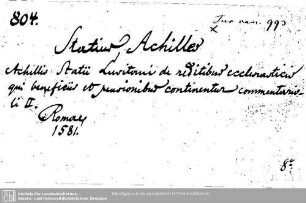 804.
Jus can. 993
x
Statius Achilles
Achillis Statii Lusitani de reditibus ecclesiasticis
qui beneficiis et pensionibus continentur commentario-
li II.
Romae
1581.
8°
Sächsische Landesbibliothek -
Staats- und Universitätsbibliothek Dresden